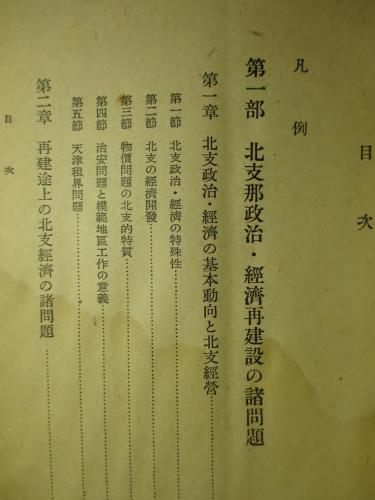 目次
凡例
第一部 北支那政治・經濟再建設の諸問題
第一章 北支政治・經濟の基本動向と北支經營
第一節 北支政治・經濟の特殊性
第二節 北支の經濟開發
第三節 物價問題の北支的特質
第四節 治安問題と模範地區工作の意義
第五節 天津租界問題
第二章 再建途上の北支經濟の諸問題
目次